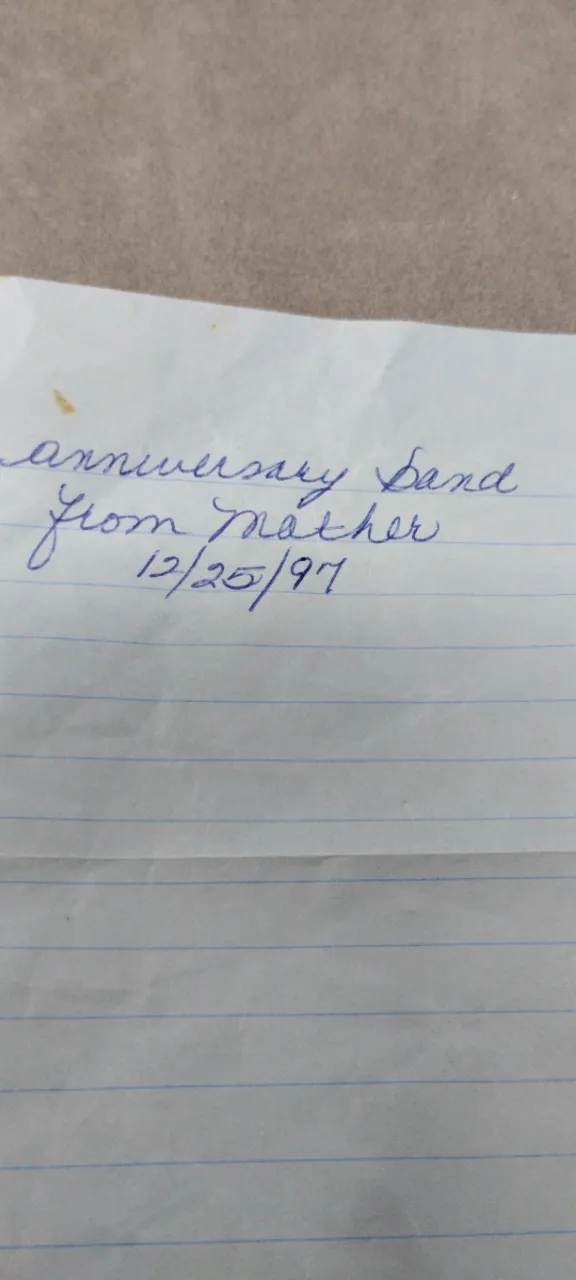 anniversary band
from Mother
12/25/97